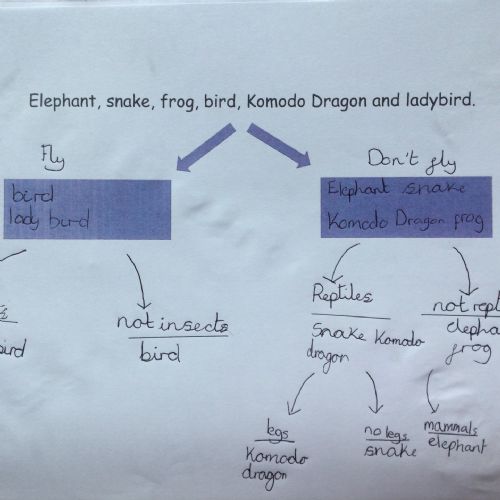 Elephant, snake, frog, bird, Komodo Dragon and ladybird.
Fly
Don't fly
bird
lady burd
Elephant snake
Komodo Dragon frog
not insects
bird
Reptiles
snake Komodo
dragon
not rept
elepha
frog
legs
Komodo
dragon
no legs
snake
mammals
elephant